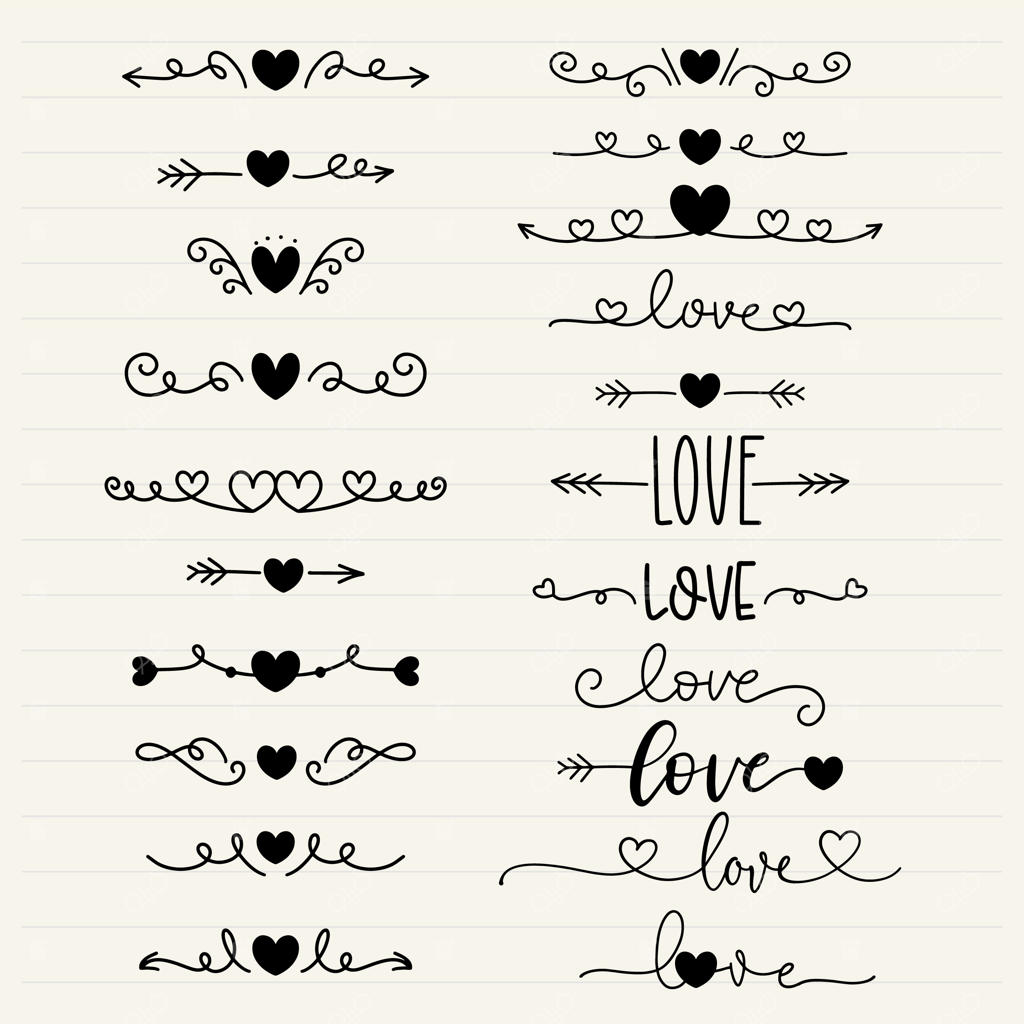 love
LOVE
LOVE
love
love
love
love